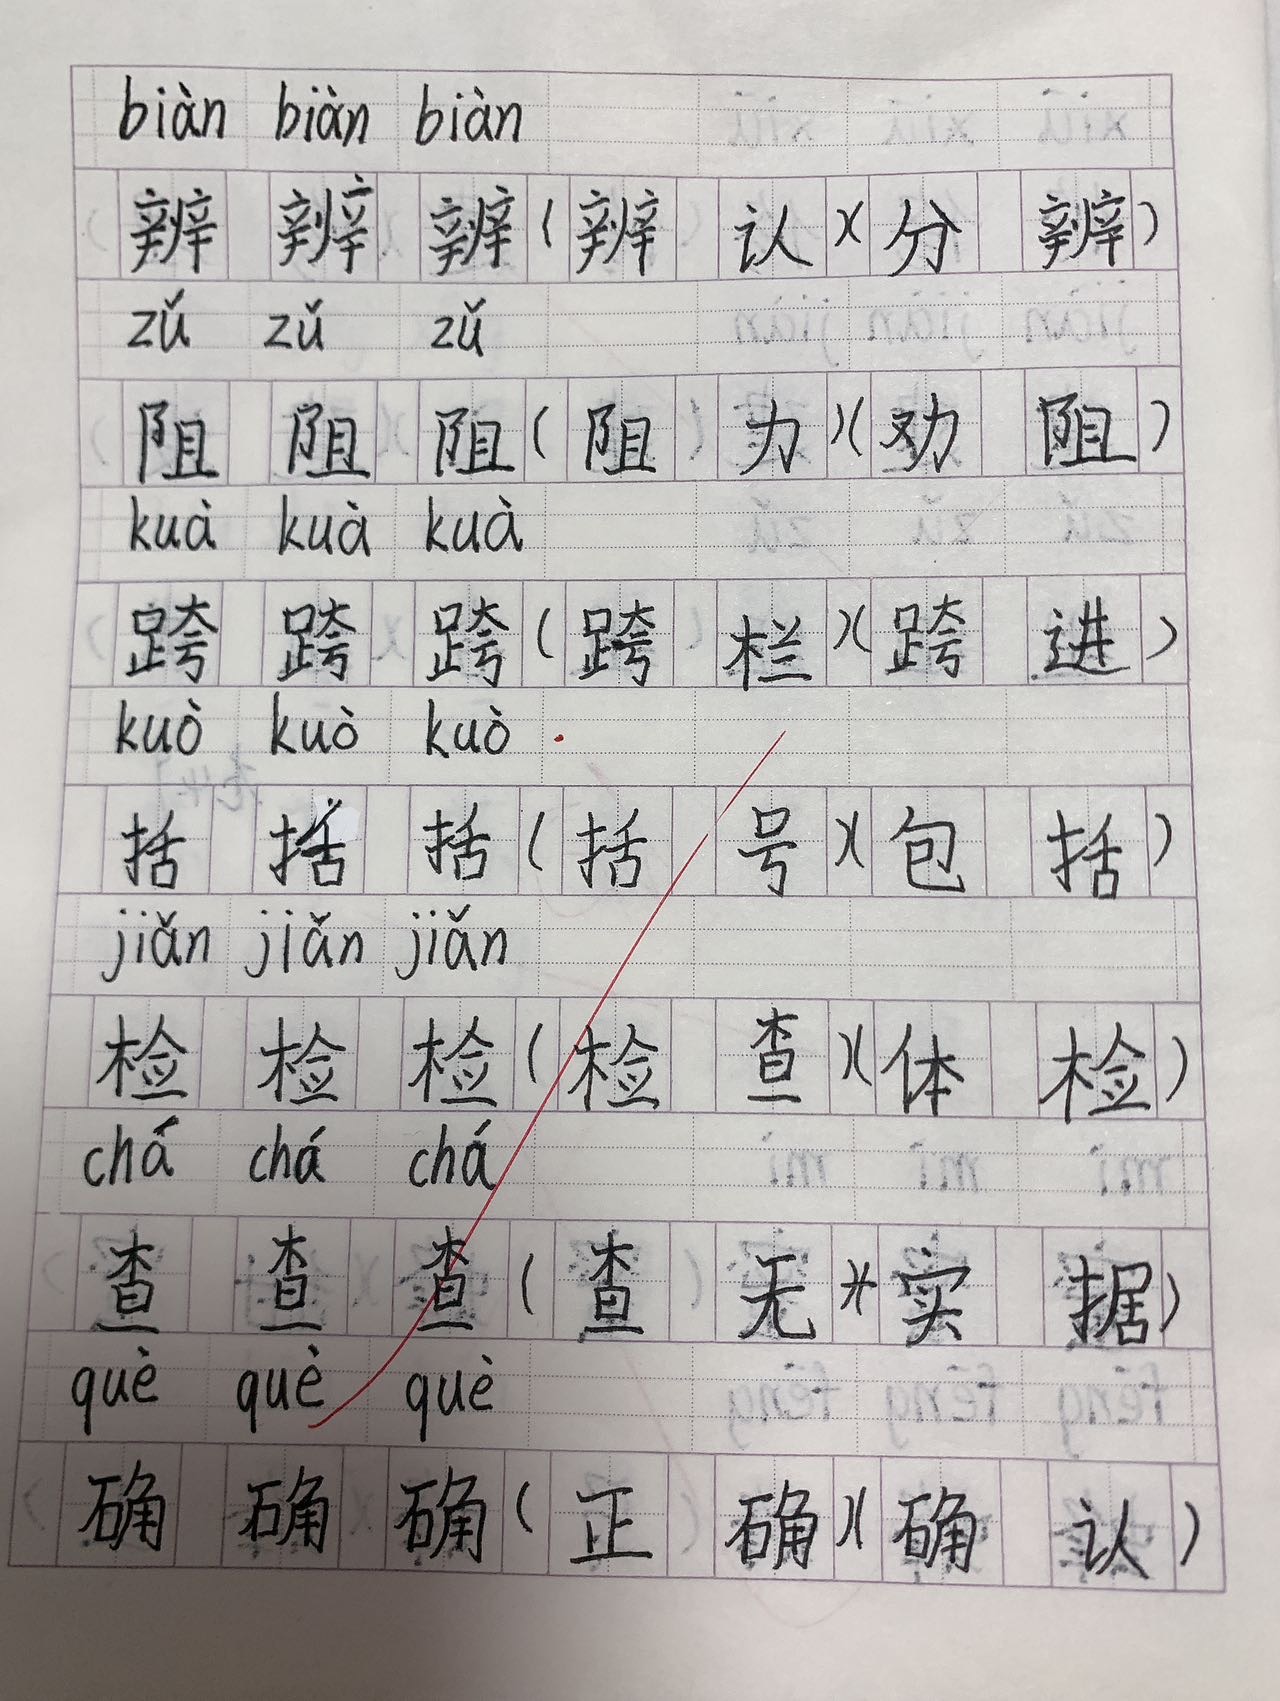 biàn biàn biàn
辨 辨 辨 ( 辨 认 )( 分 辨 )
zǔ zǔ zǔ
阻 阻 阻 ( 阻 力 )( 劝 阻 )
kuà kuà kuà
跨 跨 跨 ( 跨 栏 )( 跨 进 )
kuò kuò kuò
括 括 括 ( 括 号 )( 包 括 )
jiǎn jiǎn jiǎn
检 检 检 ( 检 查 )( 体 检 )
chá chá chá
查 查 查 ( 查 无 实 据 )
què què què
确 确 确 ( 正 确 )( 确 认 )